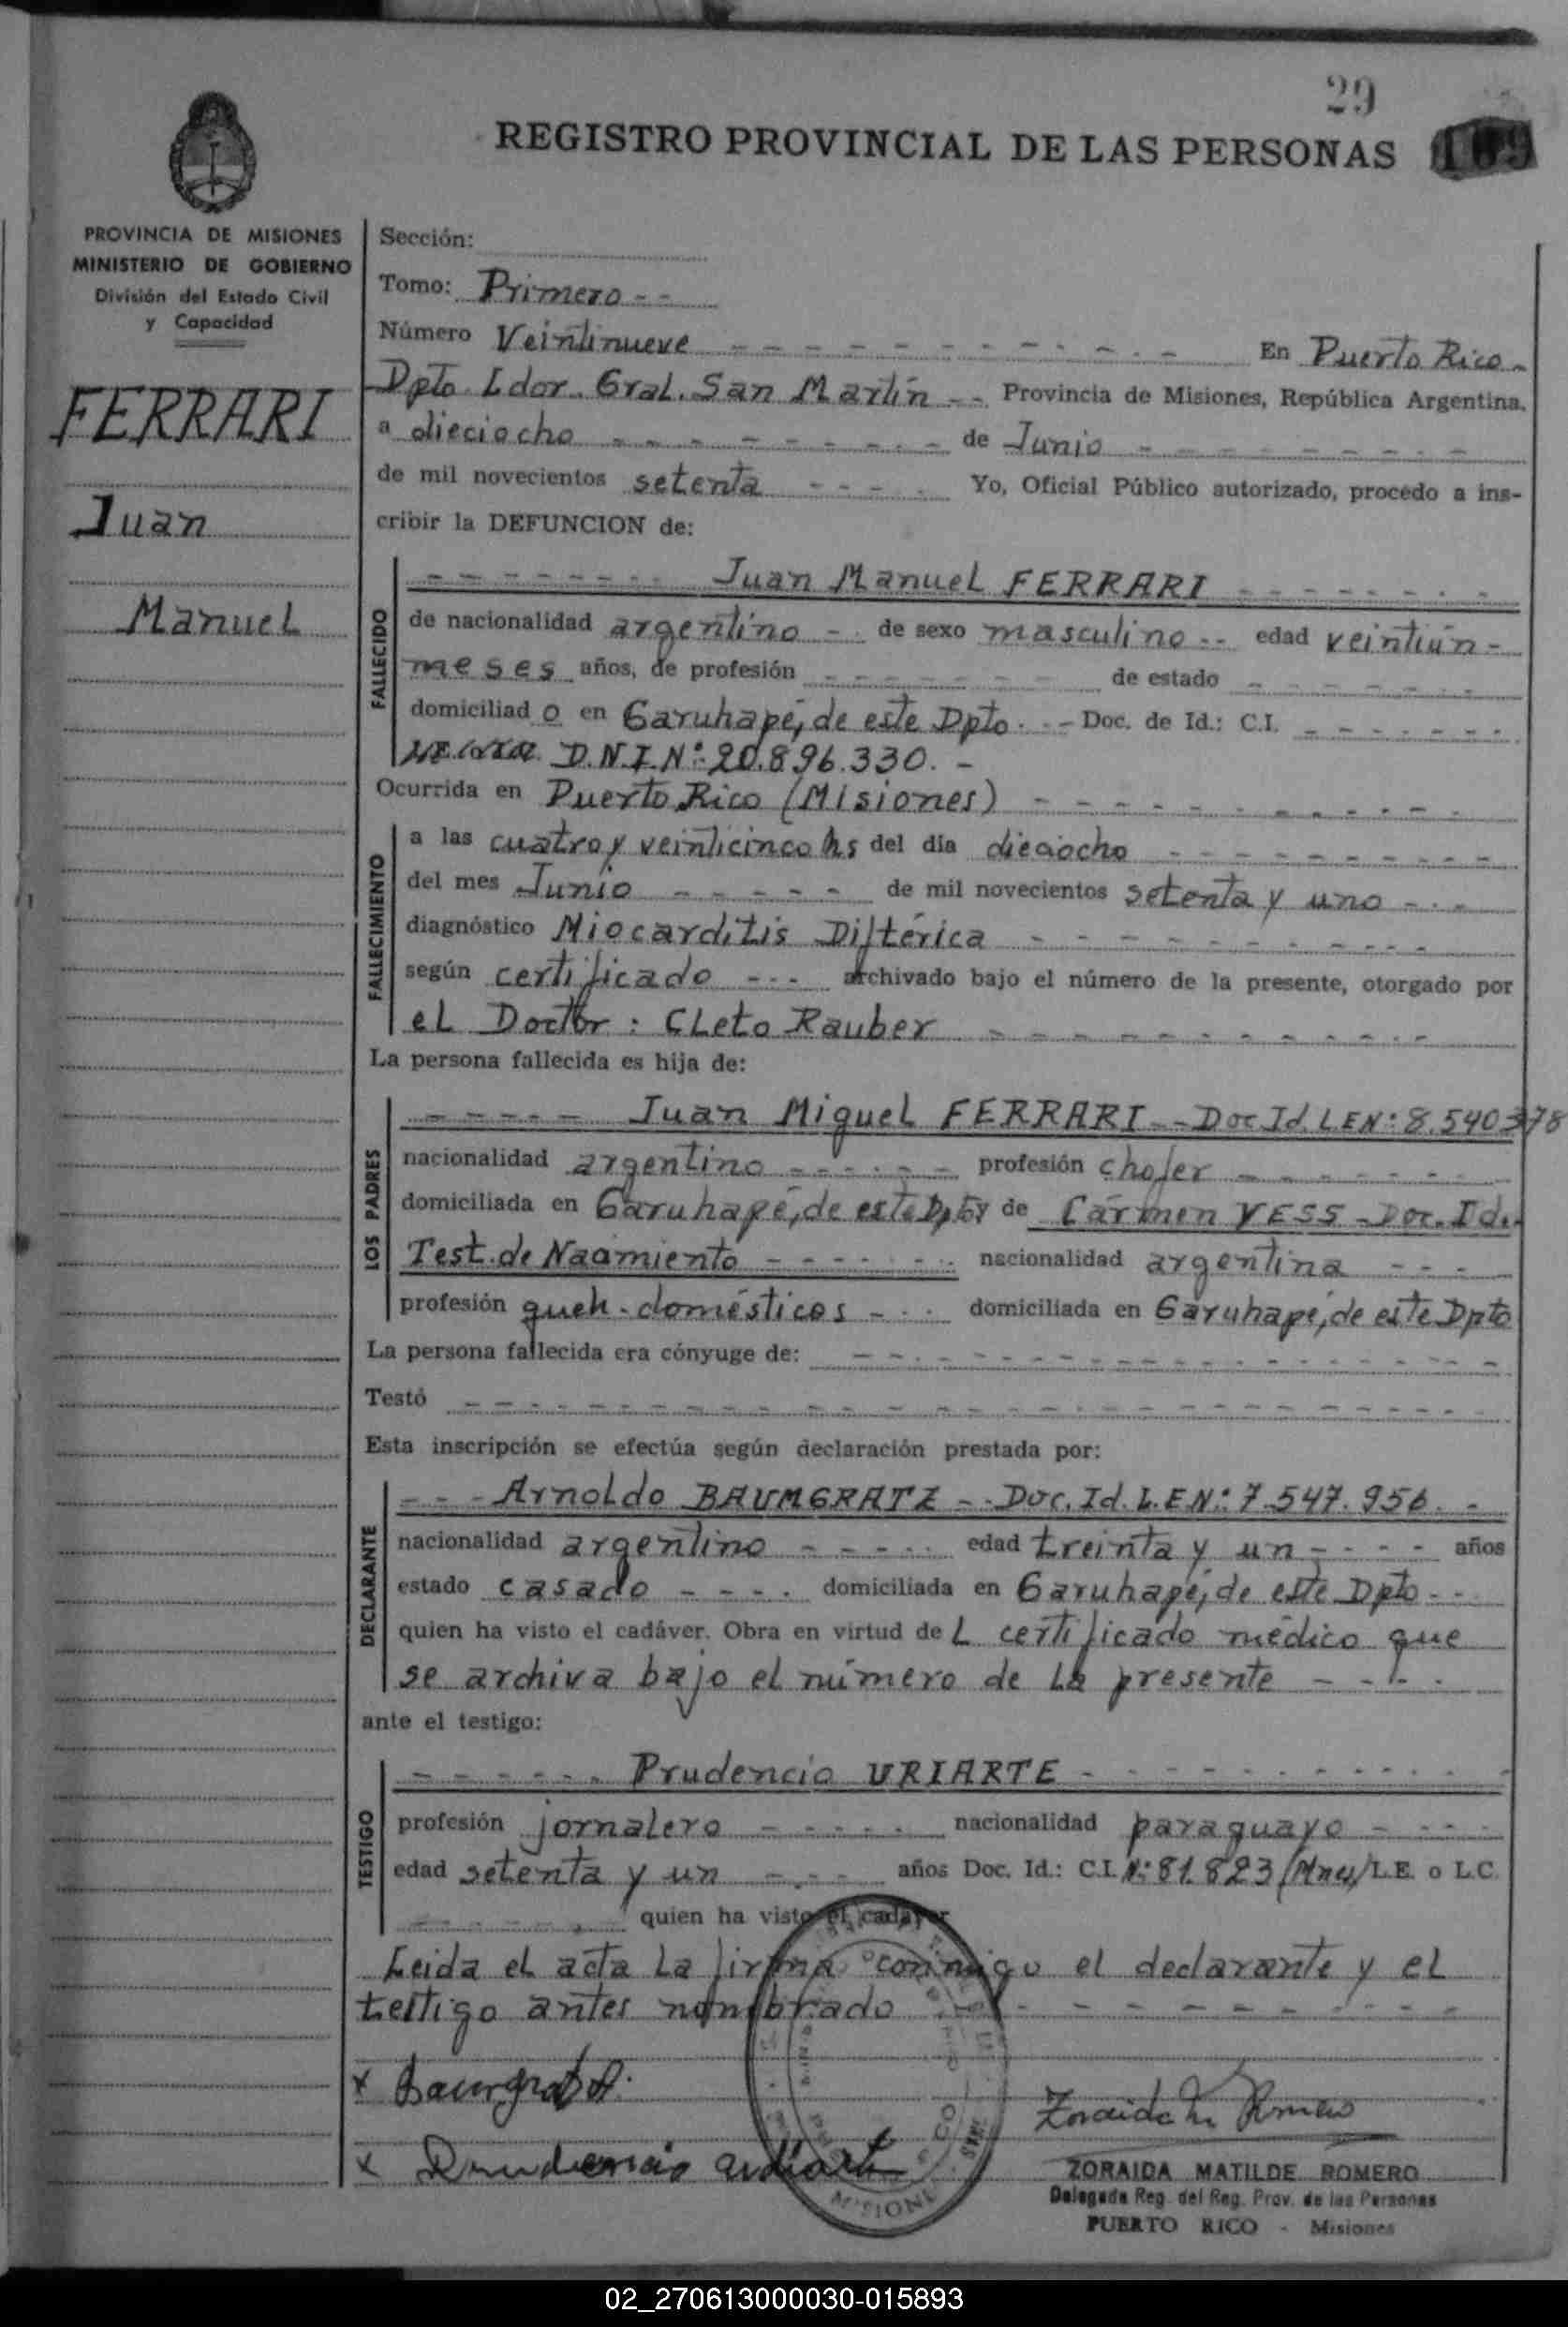 29
REGISTRO PROVINCIAL DE LAS PERSONAS 109
PROVINCIA DE MISIONES
MINISTERIO DE GOBIERNO
División del Estado Civil
y Capacidad
FERRARI
Juan
Manuel
Sección:
Tomo: Primero - -
Número Veintinueve - - - - - - - - - - - En Puerto Rico -
Dpto Ldor. Gral. San Martín - - Provincia de Misiones, República Argentina.
a dieciocho - - - - - - - - - de Junio - - - - - - - -
de mil novecientos setenta - - - - Yo, Oficial Público autorizado, procedo a ins-
cribir la DEFUNCION de:
FALLECIDO
- - - - - - - - Juan Manuel FERRARI - - - - - - - -
de nacionalidad argentino - - de sexo masculino - - edad veintiún -
meses años, de profesión - - - - - - - de estado - - - - - -
domiciliado en Garuhapé, de este Dpto. - - Doc. de Id.: C.I. - - - - - - -
D.N.I. Nº: 20.896.330. -
Ocurrida en Puerto Rico (Misiones) - - - - - - - - - - -
FALLECIMIENTO
a las cuatro y veinticinco hs del día dieciocho - - - - - - - - -
del mes Junio - - - - - de mil novecientos setenta y uno - - -
diagnóstico Miocarditis Diftérica - - - - - - - - - - -
según certificado - - - archivado bajo el número de la presente, otorgado por
el Doctor: Cleto Rauber - - - - - - - - - - -
La persona fallecida es hija de:
LOS PADRES
- - - - - Juan Miguel FERRARI - - Doc Id. L.E Nº: 8.540378
nacionalidad argentino - - - - - - profesión chofer - - - - - - -
domiciliada en Garuhapé, de este Dpto y de Cármen YESS - Doc. Id.
Test. de Nacimiento - - - - - - - nacionalidad argentina - - -
profesión queh. domésticos - - - domiciliada en Garuhapé, de este Dpto
La persona fallecida era cónyuge de: - - - - - - - - - - - - - - - - -
Testó - - - - - - - - - - - - - - - - - - - -
Esta inscripción se efectúa según declaración prestada por:
DECLARANTE
- - - Arnoldo BAUMGRATZ - - Doc. Id. L.E Nº: 7.547.956. -
nacionalidad argentino - - - - - edad treinta y un - - - - años
estado casado - - - - domiciliada en Garuhapé, de este Dpto - -
quien ha visto el cadáver. Obra en virtud del certificado médico que
se archiva bajo el número de la presente - - - -
ante el testigo:
TESTIGO
- - - - - - Prudencio URIARTE - - - - - - - - - - -
profesión jornalero - - - - - nacionalidad paraguayo - - - -
edad setenta y un - - - - años Doc. Id.: C.I. Nº: 81.823 (Mnes) L.E. o L.C.
- - - - - - quien ha visto el cadáver
Leida el acta la firma conmigo el declarante y el
testigo antes nombrado - - - - - - - - -
x Baumgratz A.
Zoraida M Romero
x Prudencio uriarte
MISIONES
ZORAIDA MATILDE ROMERO
Delegada Reg. del Reg. Prov. de las Personas
PUERTO RICO - Misiones
02_270613000030-015893